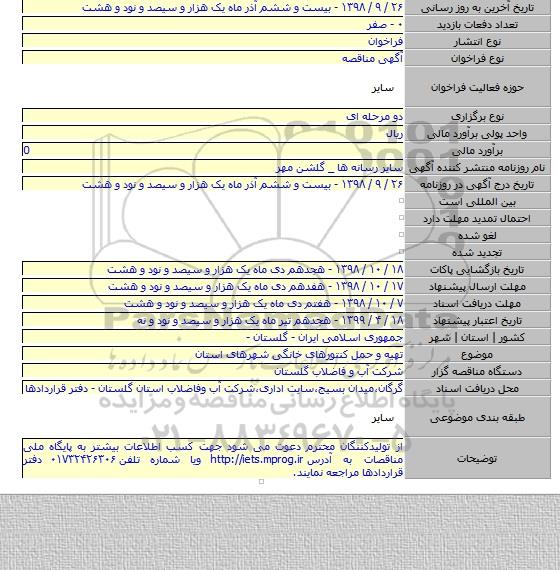 تاریخ آخرین به روز رسانی ۲۶ / ۹ / ۱۳۹۸ - بیست و ششم آذر ماه یک هزار و سیصد و نود و هشت
تعداد دفعات بازدید ۰ - صفر
نوع انتشار فراخوان
نوع فراخوان آگهی مناقصه
حوزه فعالیت فراخوان سایر
نوع برگزاری دو مرحله ای
واحد پولی برآورد مالی ریال
برآورد مالی 0
نام روزنامه منتشر کننده آگهی سایر رسانه ها _ گلشن مهر
تاریخ درج آگهی در روزنامه ۲۶ / ۹ / ۱۳۹۸ - بیست و ششم آذر ماه یک هزار و سیصد و نود و هشت
بین المللی است
احتمال تمدید مهلت دارد
لغو شده
تجدید شده
تاریخ بازگشایی پاکات ۱۸ / ۱۰ / ۱۳۹۸ - هجدهم دی ماه یک هزار و سیصد و نود و هشت
مهلت ارسال پیشنهاد ۱۷ / ۱۰ / ۱۳۹۸ - هفدهم دی ماه یک هزار و سیصد و نود و هشت
مهلت دریافت اسناد ۷ / ۱۰ / ۱۳۹۸ - هفتم دی ماه یک هزار و سیصد و نود و هشت
تاریخ اعتبار پیشنهاد ۱۸ / ۴ / ۱۳۹۹ - هجدهم تیر ماه یک هزار و سیصد و نود و نه
کشور | استان | شهر جمهوری اسلامی ایران - گلستان -
موضوع تهیه و حمل کنتورهای خانگی شهرهای استان
دستگاه مناقصه گزار شرکت آب و فاضلاب گلستان
محل دریافت اسناد گرگان،میدان بسیج،سایت اداری،شرکت آب وفاضلاب استان گلستان - دفتر قراردادها
طبقه بندی موضوعی سایر
از تولیدکنندگان محترم دعوت می شود جهت کسب اطلاعات بیشتر به پایگاه ملی
توضیحات مناقصات به آدرس http://iets.mprog.ir ویا شماره تلفن ۰۱۷۳۲۴۲۶۳۰۶ دفتر
قراردادها مراجعه نمایند.
پایگاه اطلاع رسانی مناقصه و مزایده
۰۲۱-۸۸۳۴۹۶۷۰-۵